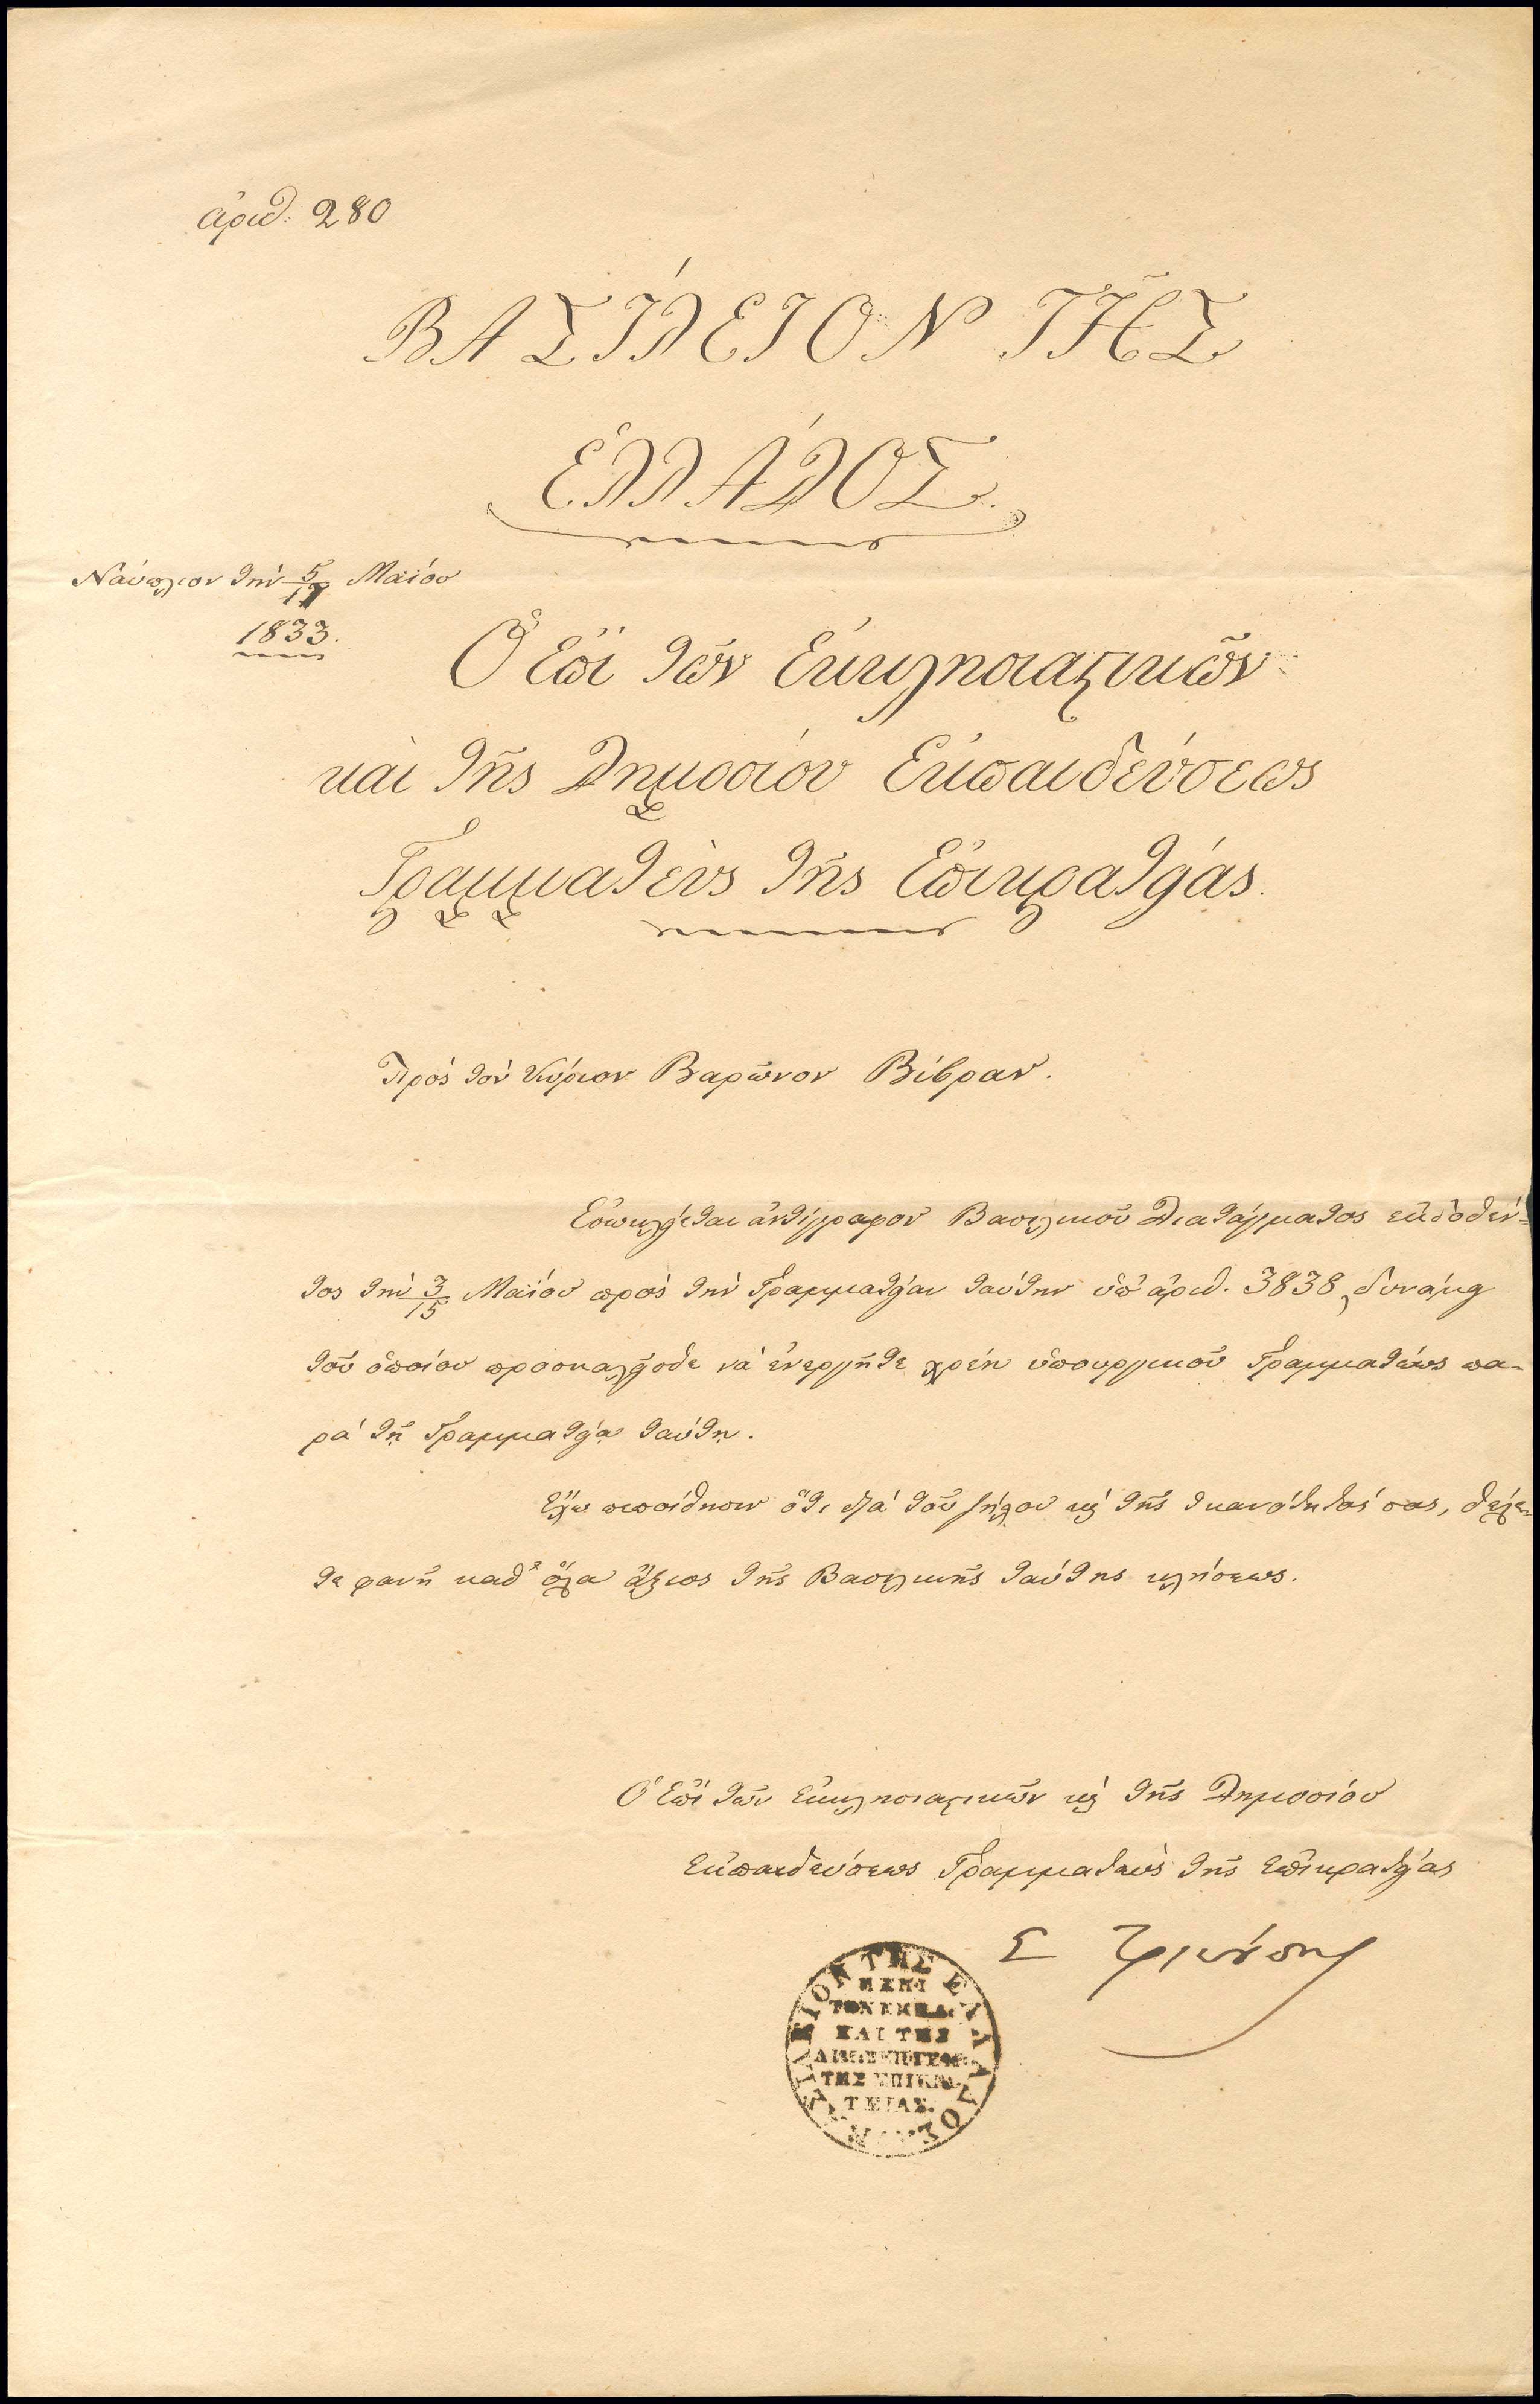 ἀριθ: 280
ΒΑΣΊΛΕΙΟΝ ΤΗ͂Σ
ἙΛΛΆΔΟΣ.
Ναύπλιον τὴν 5/17 Μαΐου
1833.
Ὁ Ἐπὶ τῶν Ἐκκλησιαστικῶν
καὶ τῆς Δημοσίου Ἐκπαιδεύσεως
Γραμματεὺς τῆς Ἐπικρατείας.
Πρὸς τὸν Κύριον Βαρῶνον Βίβραν.
Ἐσωκλείεται ἀντίγραφον Βασιλικοῦ Διατάγματος ἐκδοθέν-
τος τὴν 3/15 Μαΐου πρὸς τὴν Γραμματείαν ταύτην ὑπ' ἀριθ. 3838, δυνάμει
τοῦ ὁποίου προσκαλεῖσθε νὰ ἐνεργῆτε χρέη ὑπουργικοῦ Γραμματέως πα-
ρὰ τῇ Γραμματείᾳ ταύτῃ.
Ἔχω πεποίθησιν ὅτι διὰ τοῦ ζήλου καὶ τῆς ἱκανότητός σας, θέλε-
τε φανῆ καθ' ὅλα ἄξιος τῆς Βασιλικῆς ταύτης κλήσεως.
Ὁ Ἐπὶ τῶν Ἐκκλησιαστικῶν καὶ τῆς Δημοσίου
Ἐκπαιδεύσεως Γραμματεὺς τῆς Ἐπικρατείας
Σ Τρικούπης
ΒΑΣΙΛΕΙΟΝ ΤΗΣ ΕΛΛΑΔΟΣ
Η ΕΠΙ
ΤΩΝ ΕΚΚΛ.
ΚΑΙ ΤΗΣ
ΤΗΣ ΕΠΙΚΡΑ
ΤΕΙΑΣ.